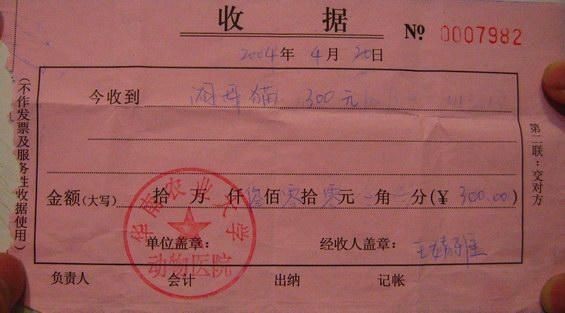 收 据 № 0007982
2004年 4月 20日
今收到 阉母猫 300元
金额(大写) 拾 万 仟 叁佰 零拾 零元 角 分(￥ 300.00)
单位盖章: 经收人盖章:
负责人 会计 出纳 记帐
(不作发票及服务性收据使用)
第二联:交对方
华南农业大学
动物医院